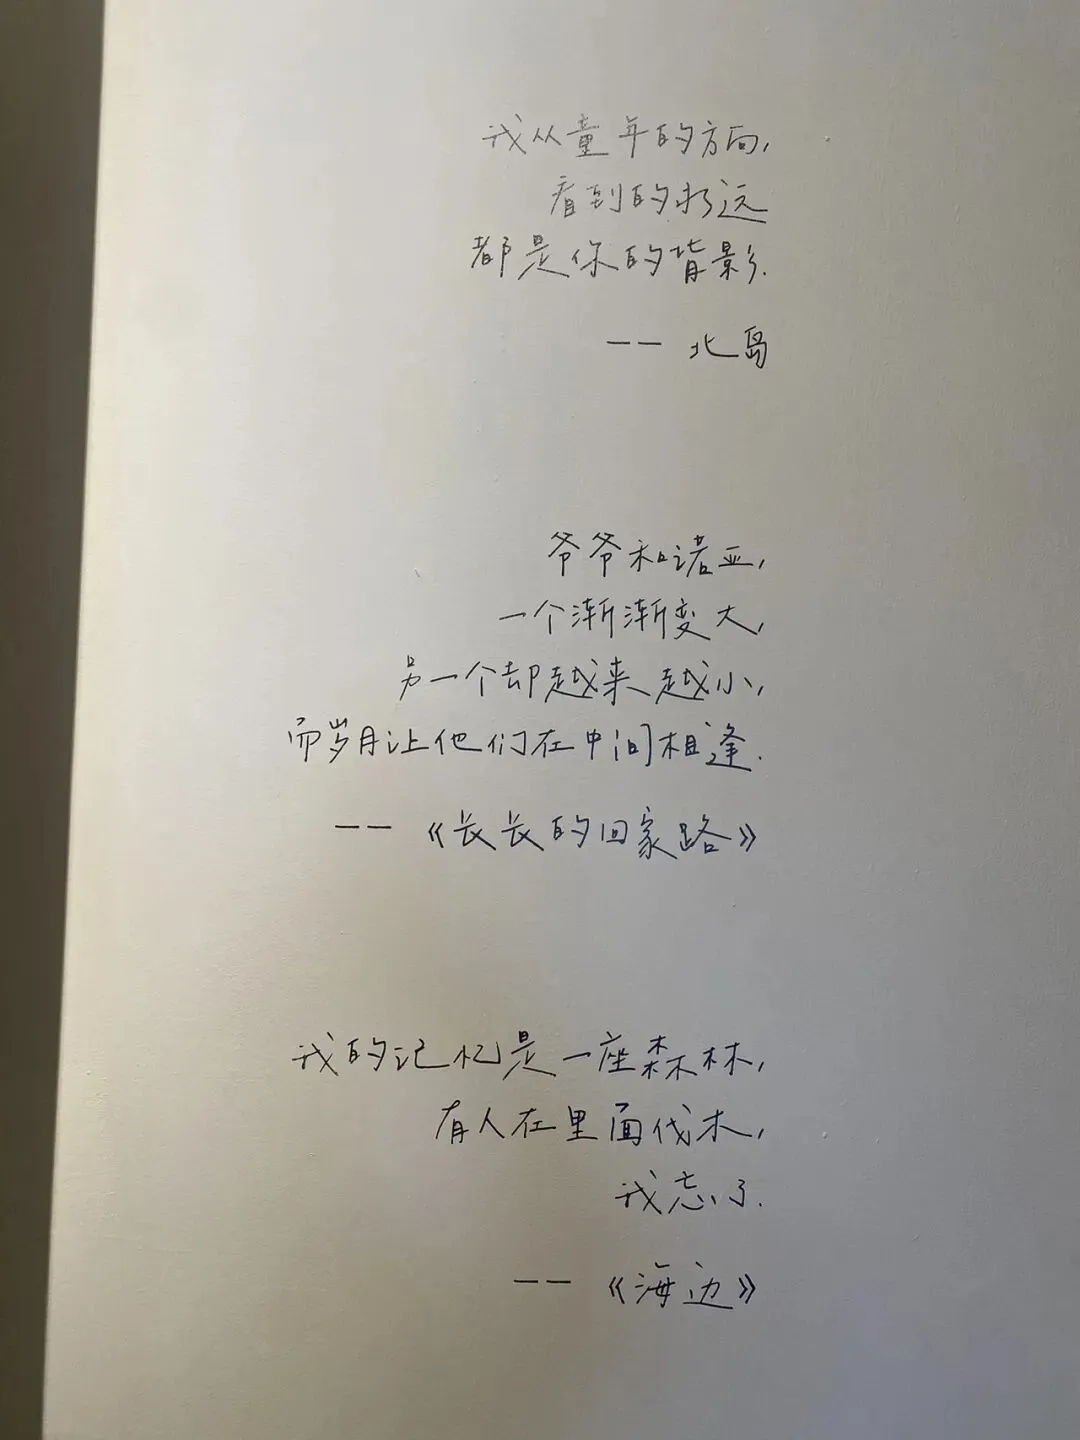 我从童年的方向,
看到的永远
都是你的背影.
—— 北岛
爷爷和诺亚,
一个渐渐变大,
另一个却越来越小,
而岁月让他们在中间相逢.
——《长长的回家路》
我的记忆是一座森林,
有人在里面伐木,
我忘了.
——《海边》